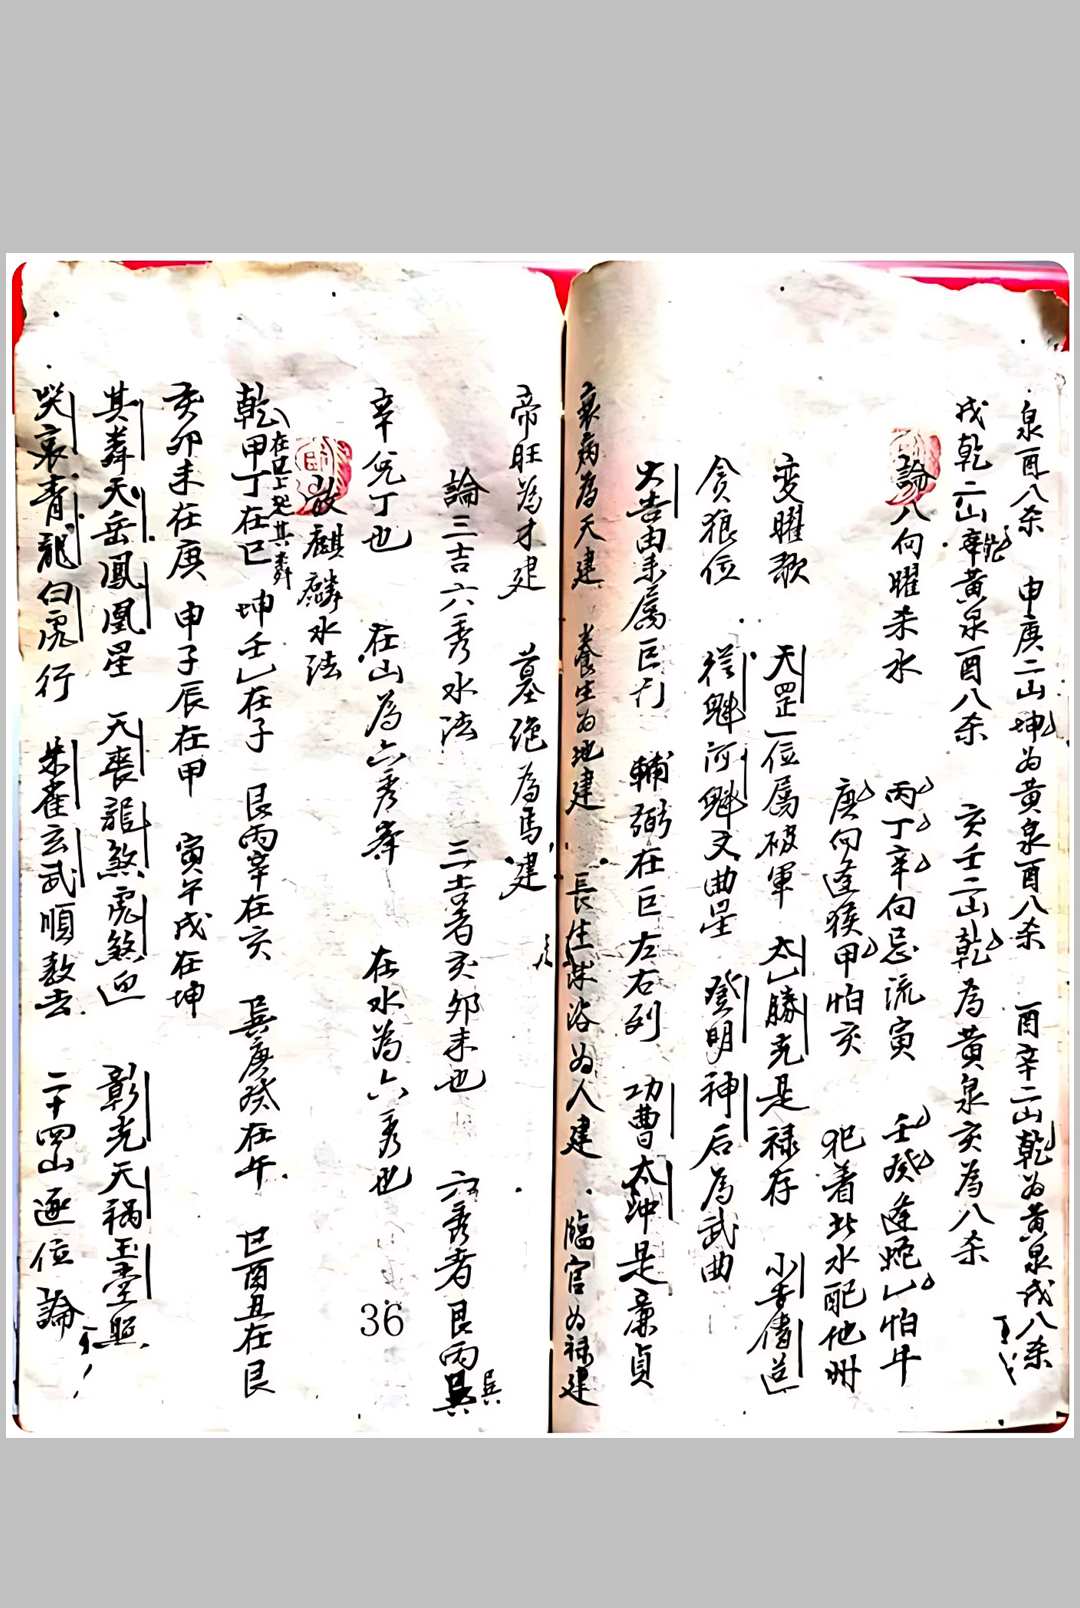 泉酉八杀 申庚二山坤为黄泉酉八杀 酉辛二山乾为黄泉戌八杀
戌乾二山辛黄泉酉八杀 亥壬二山乾為黄泉亥為八杀
論八向曜杀水 丙丁辛向忌流寅 壬癸逢蛇乙怕牛
庚向逢猴甲怕亥 犯着此水配他州
变曜歌 天罡一位属破軍 太乙勝光是禄存 小吉傳送
贪狼位 從魁河魁文曲星 登明神后為武曲
大吉由未属巨門 輔弼在巨左右列 功曹太冲是廉貞
衰病為天建 養生为地建 長生沐浴为人建 臨官为禄建
帝旺為才建 墓绝為馬建
論三吉六秀水法 三吉者亥卯未也 六秀者艮丙巽
巽
辛兌丁也 在山為六秀峯 在水為六秀也
放麒麟水法
乾甲丁在巳 坤壬乙在子 艮丙辛在亥 巽庚癸在午 巳酉丑在艮
亥卯未在庚 申子辰在甲 寅午戌在坤
其葬天岳鳳凰星 天喪龍煞虎煞迎 彰光天禍玉堂照
哭哀青龍白虎行 朱雀玄武順数去 二十四山逐位論
36